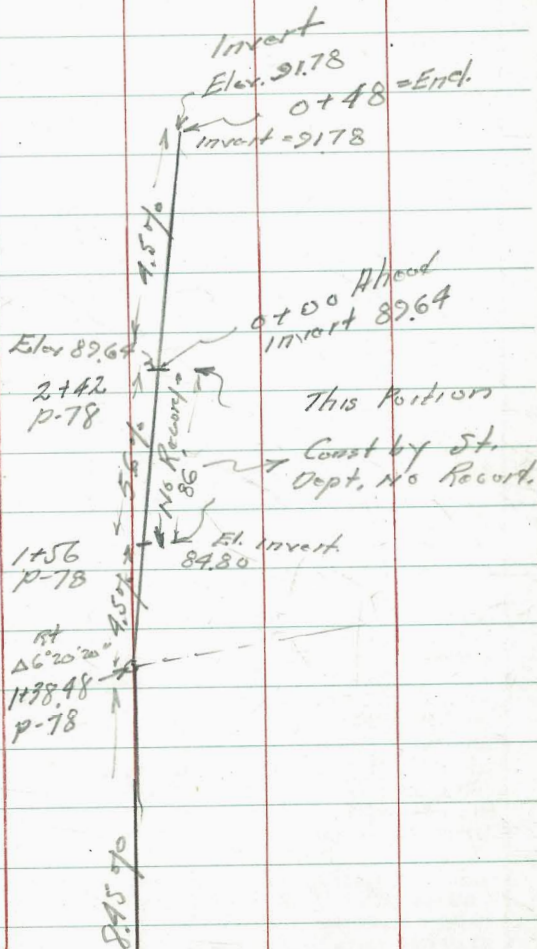 Invert
Elev. 91.78
0+48 = End.
Invert = 91.78
4.5%
0+00 Ahead
Invert 89.64
Elev 89.64
2+42
p-78
This Portion
Const by St.
Dept. No Record.
5.6%
No Record
86'
El. Invert
84.80
1+56
p-78
4.5%
Rt
Δ6°20'20"
1+38.48
p-78
8.45%